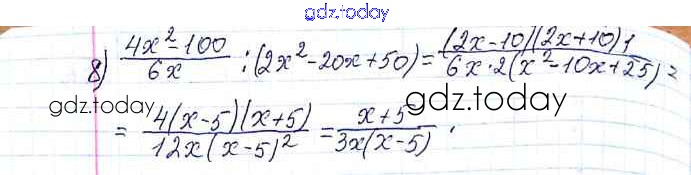 gdz.today
8) (4x² - 100)/(6x) : (2x² - 20x + 50) = ((2x - 10)(2x + 10) 1)/(6x · 2(x² - 10x + 25)) =
gdz.today gdz.today
= (4(x - 5)(x + 5))/(12x(x - 5)²) = (x + 5)/(3x(x - 5)) .